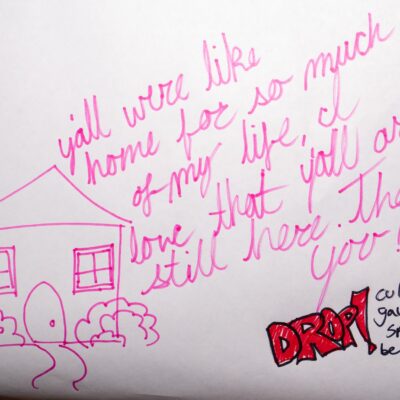 y'all were like
home for so much
of my life, I
love that y'all
still here.
you!
DROP!